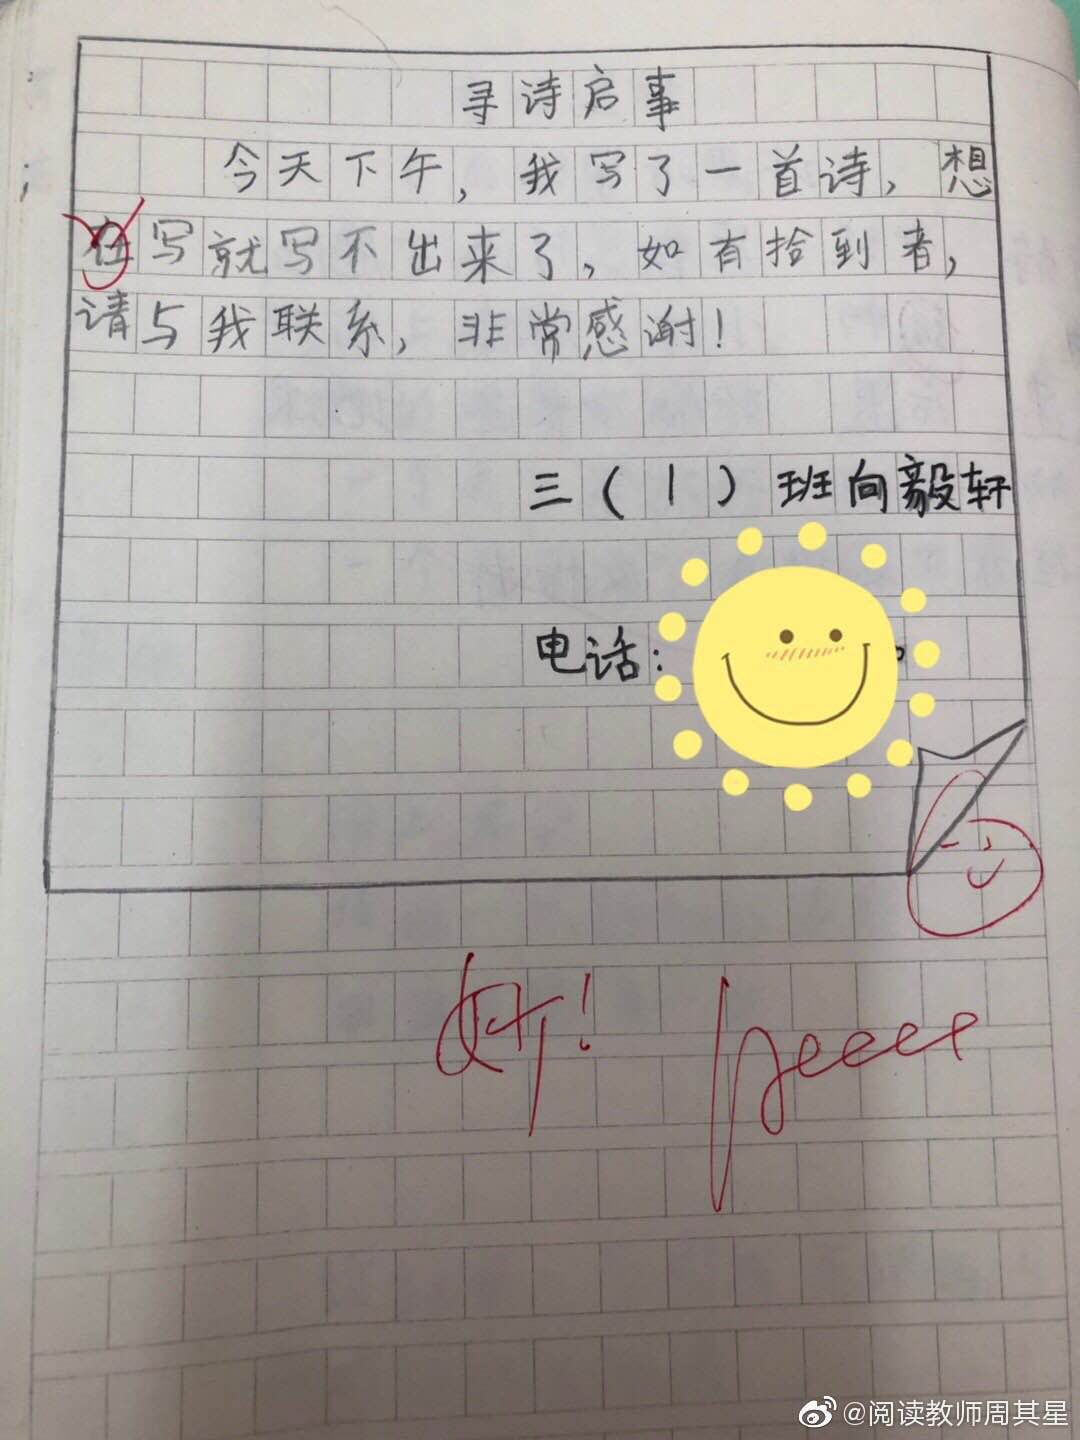 寻诗启事
今天下午，我写了一首诗，想
在写就写不出来了，如有拾到者，
请与我联系，非常感谢！
三（1）班向毅轩
电话：
好！
@阅读教师周其星